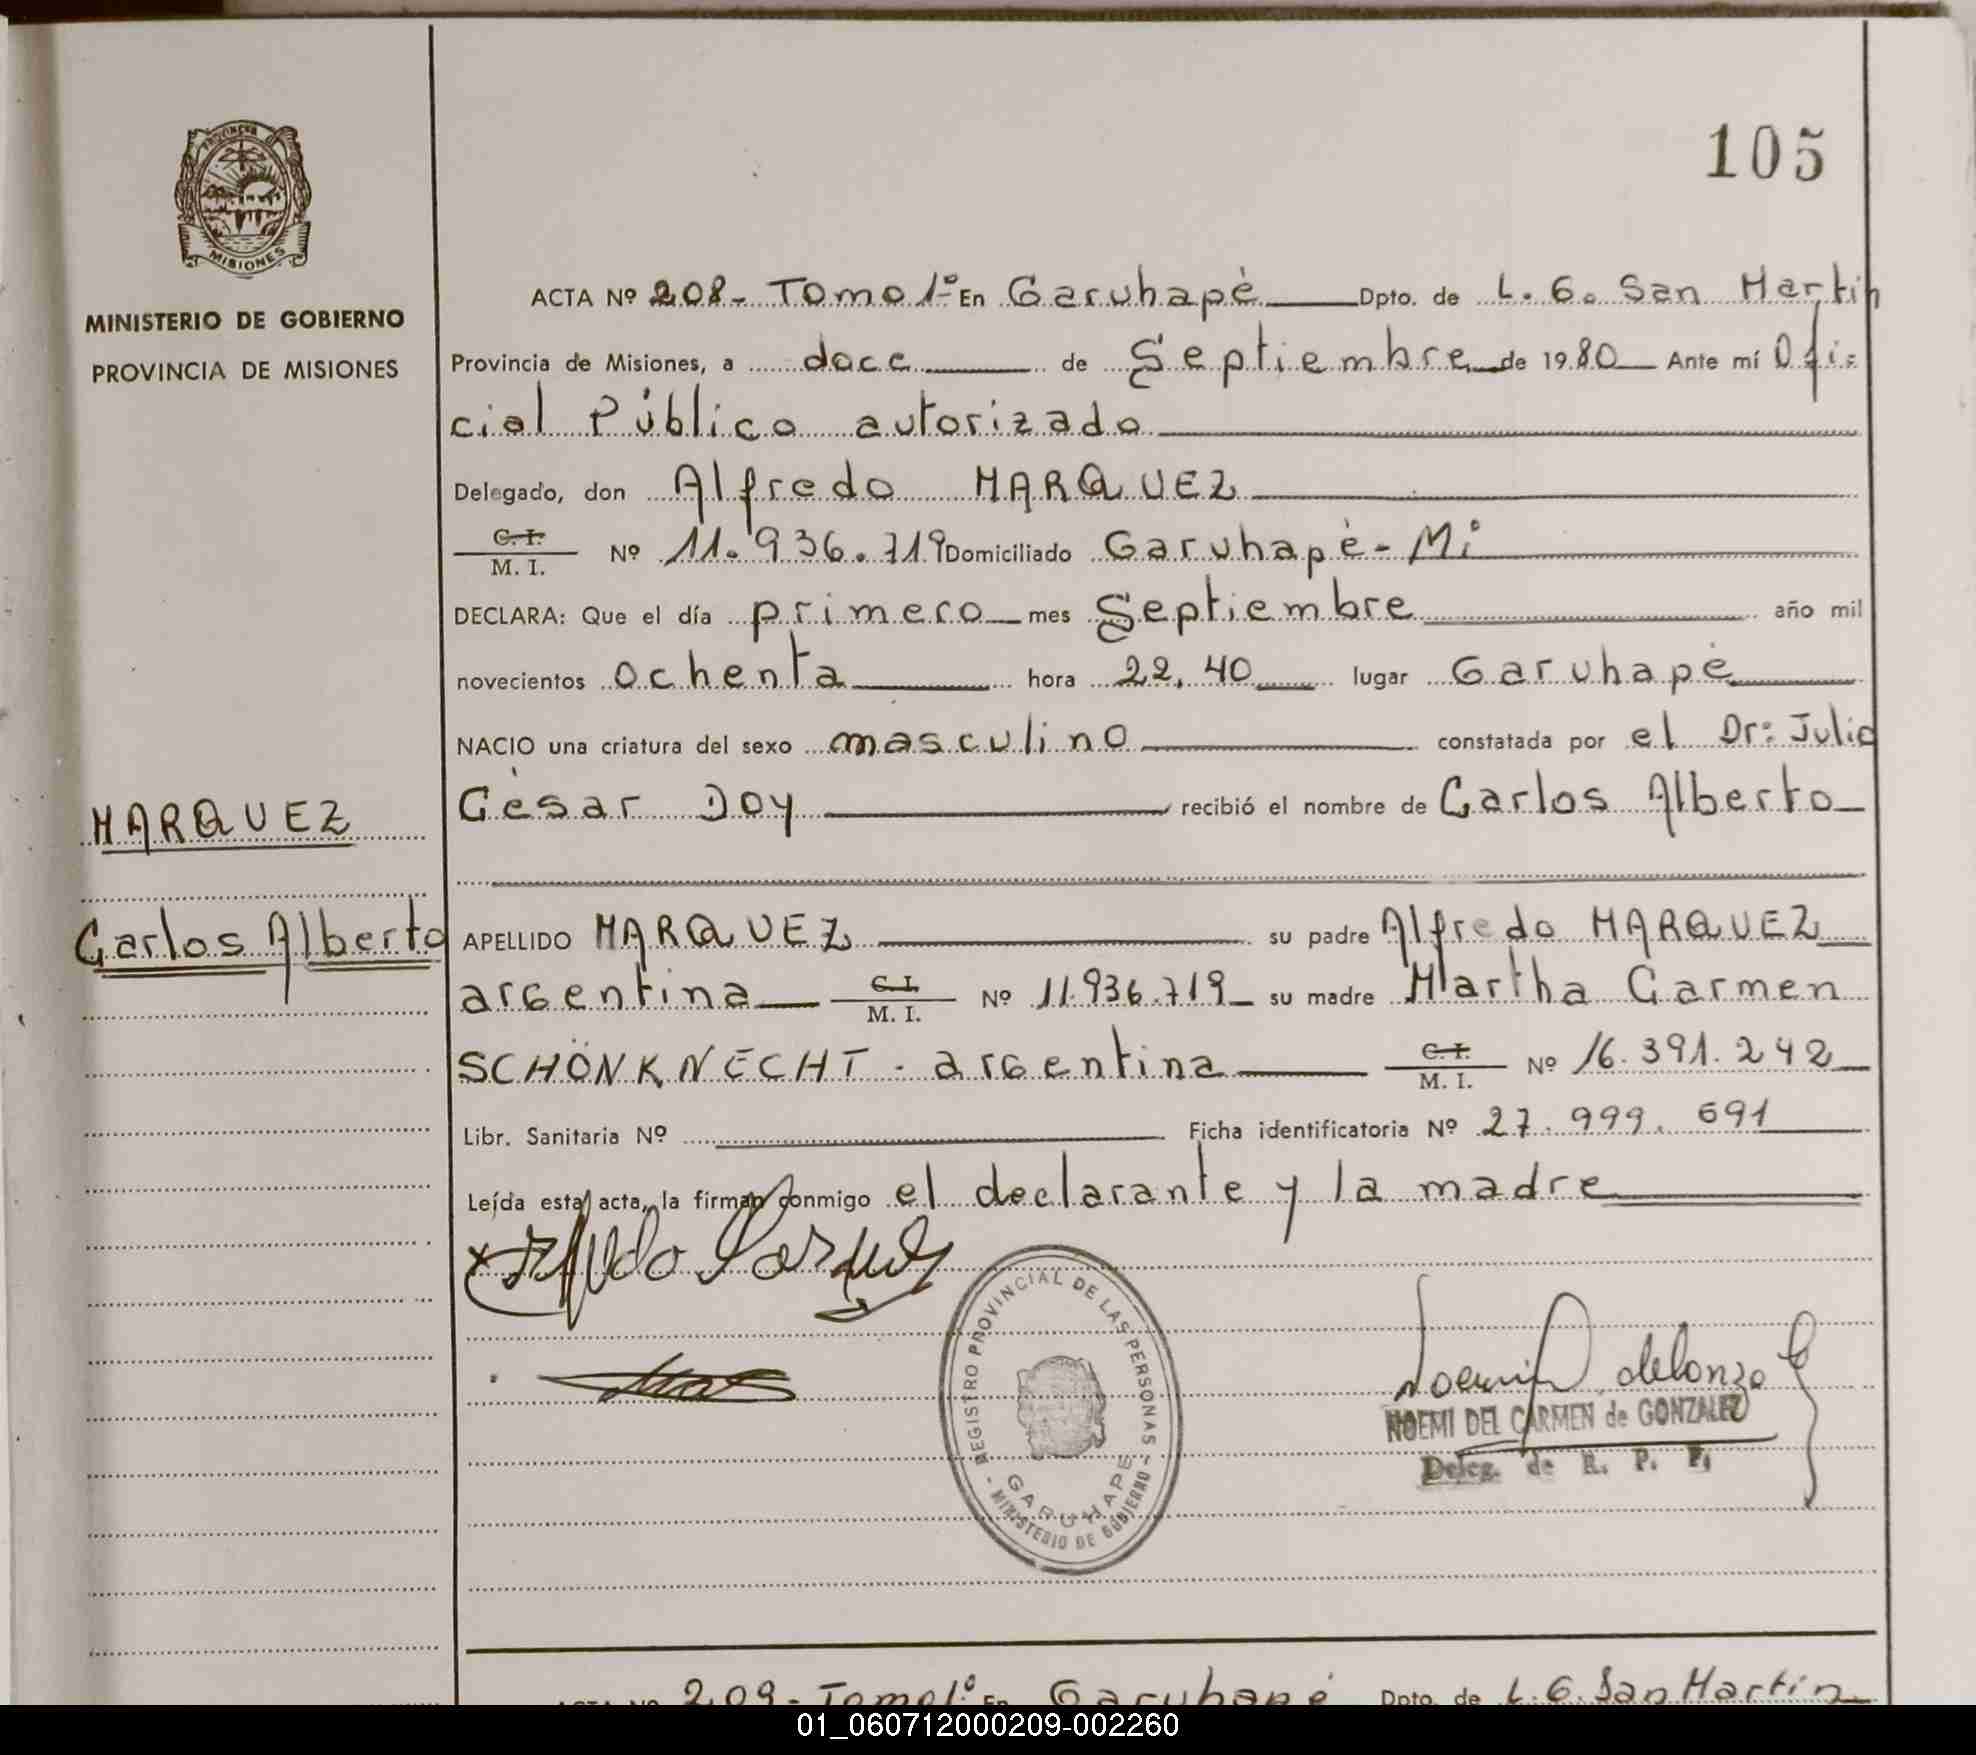 105
PROVINCIA
MISIONES
MINISTERIO DE GOBIERNO
PROVINCIA DE MISIONES
ACTA Nº 208- Tomo 1º En Garuhapé Dpto. de L. G. San Martin
Provincia de Misiones, a doce de Septiembre de 1980 Ante mí Ofi=
cial Público autorizado
Delegado, don Alfredo MARQUEZ
C. I.
M. I. Nº 11.936.719 Domiciliado Garuhapé - Mi
DECLARA: Que el día primero mes Septiembre año mil
novecientos ochenta hora 22,40 lugar Garuhapé
NACIO una criatura del sexo masculino constatada por el Dr: Julio
César Doy recibió el nombre de Carlos Alberto
MARQUEZ
Carlos Alberto
APELLIDO MARQUEZ su padre Alfredo MARQUEZ
argentina C. I. M. I. Nº 11.936.719 su madre Martha Carmen
SCHÖNKNECHT - argentina C. I. M. I. Nº 16.391.242
Libr. Sanitaria Nº Ficha identificatoria Nº 27.999.691
Leída esta acta, la firman conmigo el declarante y la madre
x Alfredo Marquez
REGISTRO PROVINCIAL DE LAS PERSONAS - MINISTERIO DE GOBIERNO -
GARUHAPE
NOEMI DEL CARMEN de GONZALEZ
Deleg. de R. P. P.
ACTA Nº 209- Tomo 1º En Garuhapé Dpto. de L. G. San Martín
01_060712000209-002260